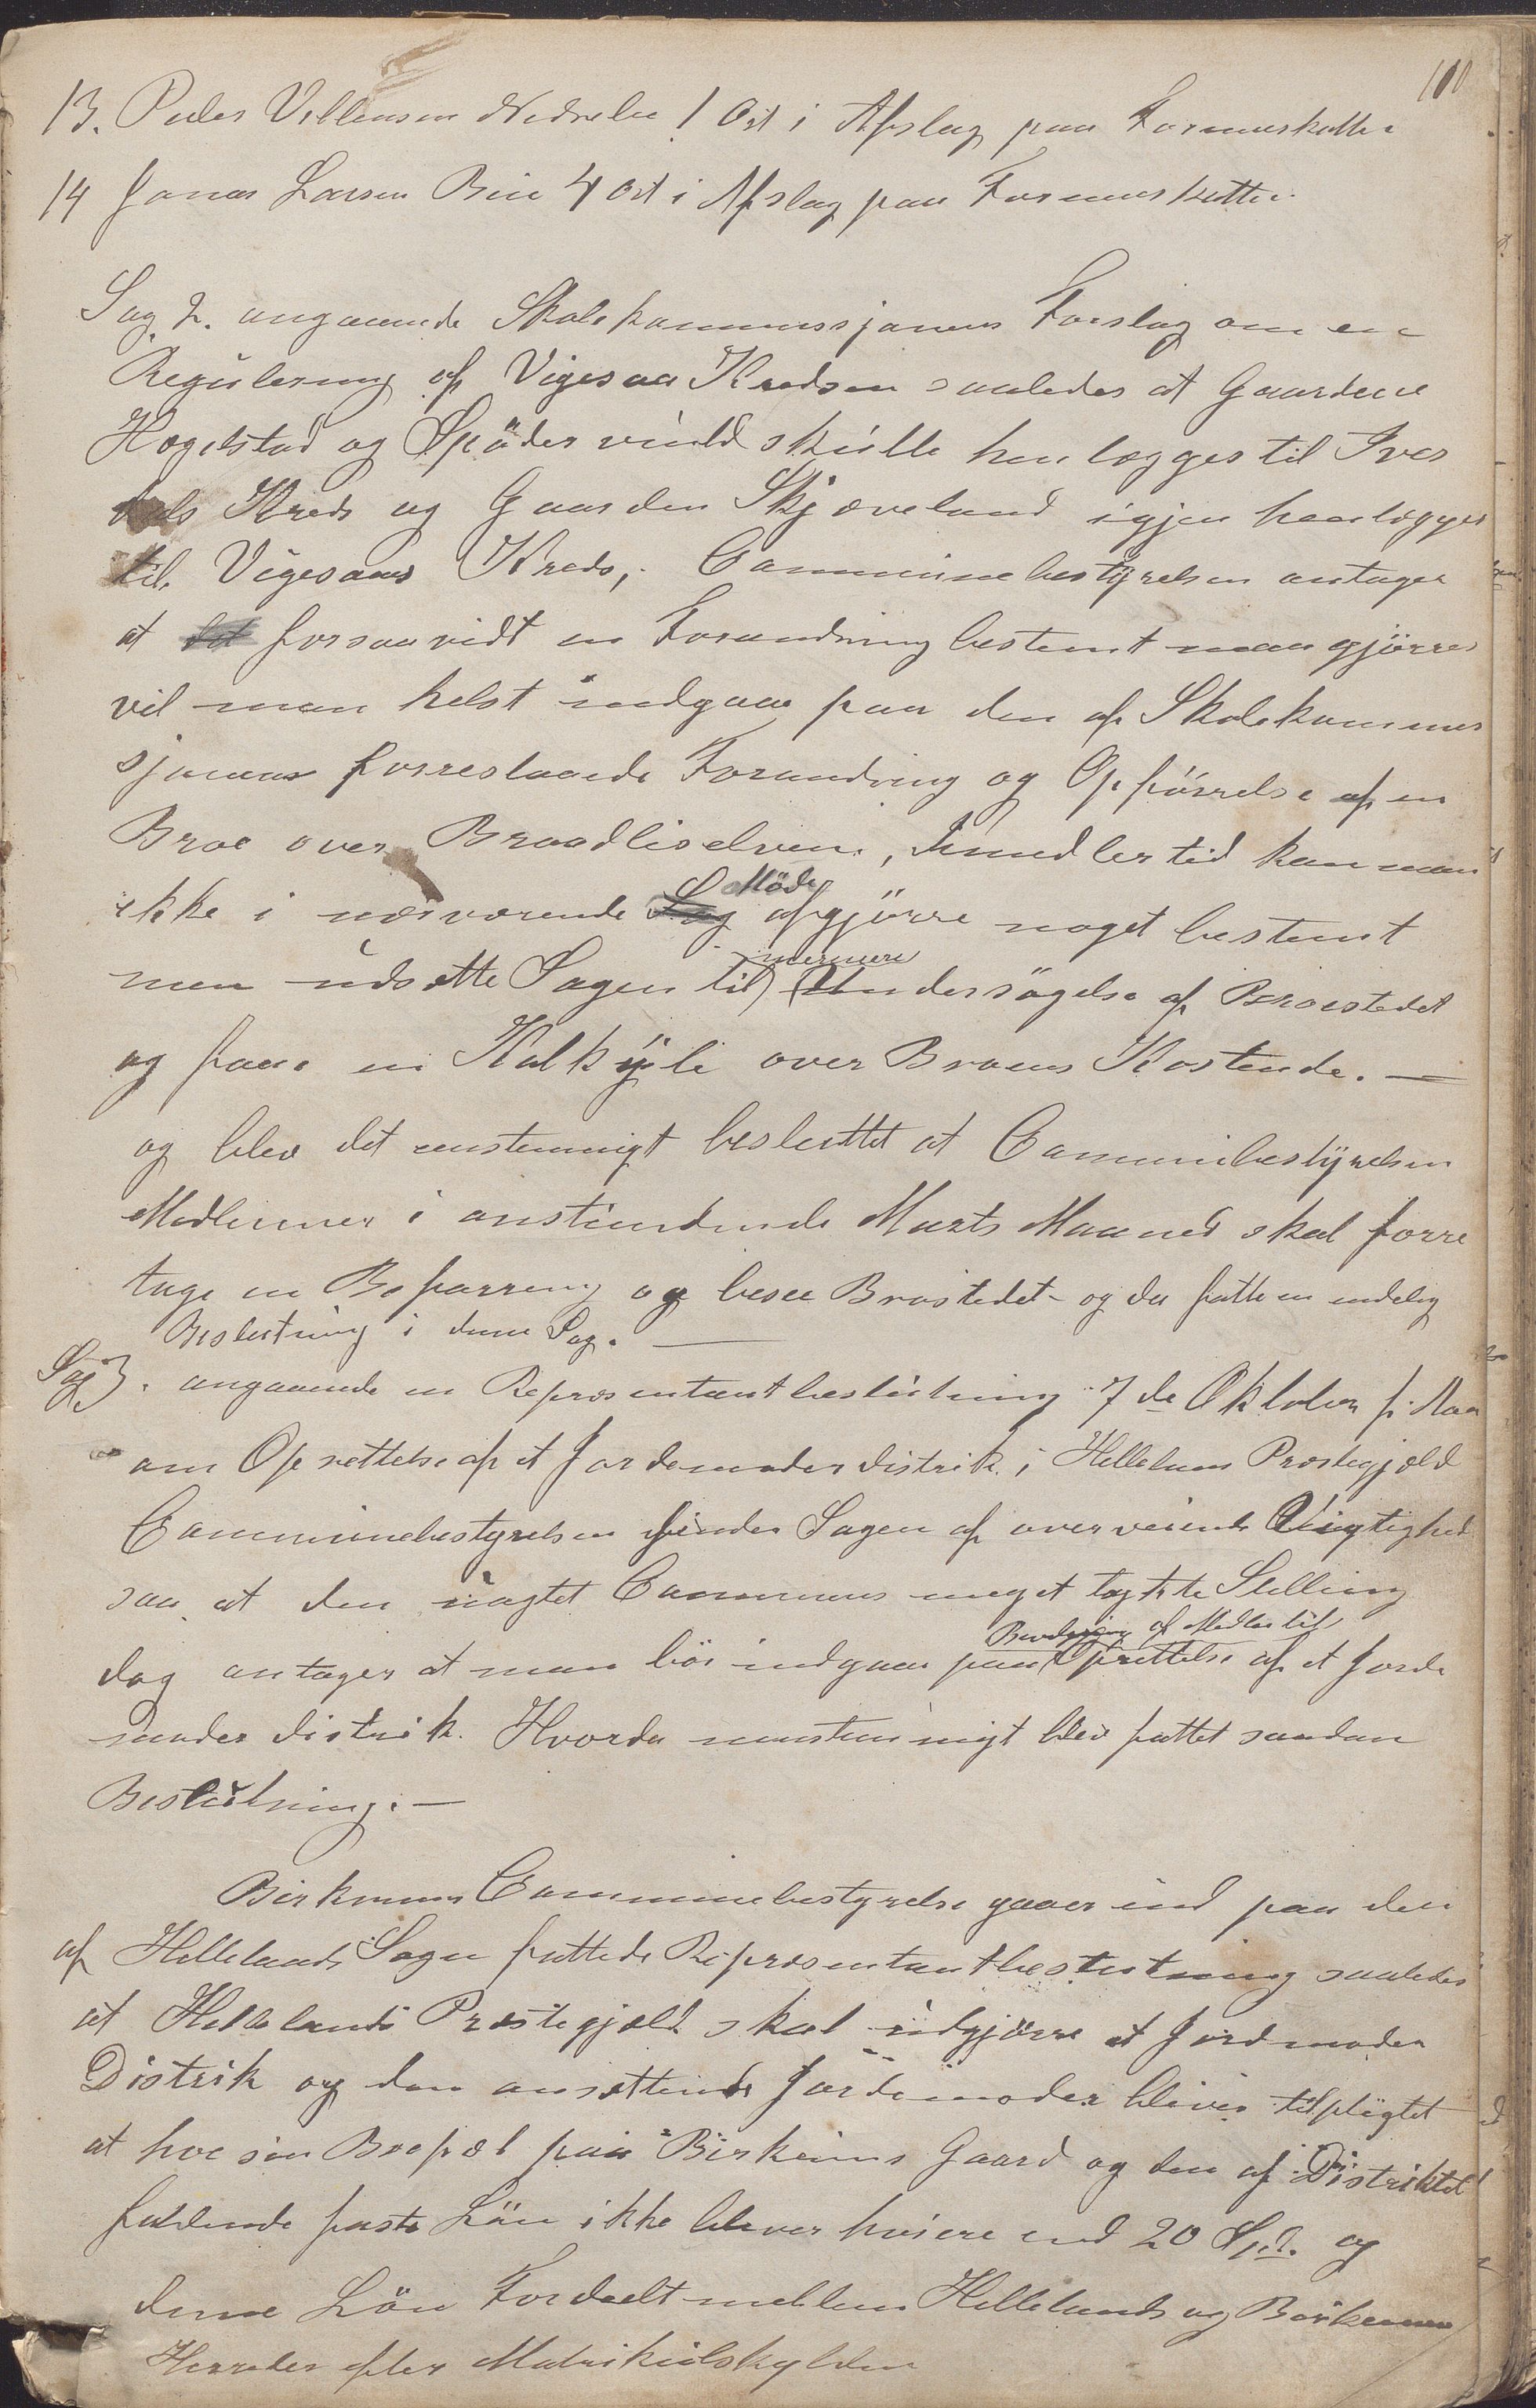 110
13. Peder Villensen Nedrebø 1 Ort i Afslag paa Formuskatten
14 Jonas Larsen Bue 4 Ort i Afslag paa Formuskatten
Sag 2. angaaende Skolekommissjonens Forslag om en
Regulering af Vigesaa Kredsen saaledes at Gaardene
Hogelstad og Spödervind skulle henlægges til Ives
dals Kreds og Gaarden Skjæveland igjen henlægges
til Vigesaas Kreds, Communebestyrelsen antager
at forsaavidt en Forandring bestemt maa gjörres
vil man helst indgaa paa den af Skolekommis
sjonens forreslaaede Forandring og Opförrelse af en
Broe over Braadlielven, Immidlertid kan man
ikke i nærværende Möde afgjörre noget bestemt
men udsætte Sagen til nærmere Undersögelse af Broestedet
og faae en Kalkyle over Broens Kostende. —
og blev det eenstemmigt besluttet at Communebestyrelsen
Medlemmer i anstundende Marts Maaned skal forre
tage en Befarring og besee Brostedet og da fatte en endelig
Beslutning i denne Sag. —
Sag 3. angaaende en Repræsentantbeslutning 7de Oktober f. Aar
om Oprettelse af et Jordemoderdistrik i Hellelands Præstegjæld
Communebestyrelsen finder Sagen af overveiende Vigtighed
saa at den uagtet Communens meget trykte Stilling
dog antager at man bör indgaa paa Bevilgning af Midler til Oprettelse af et Jorde
moder distrik. Hvorda eenstemmigt blev fattet saadan
Beslutning: —
Birkrems Communebestyrelse gaaer ind paa den
af Hellelands Sogn fattede Repræsentantbeslutning saaledes
at Hellelands Præstegjæld skal udgjörre et Jordmoder
Distrik og den ansættende Jordemoder bliver tilpligtet
at have sin Bopæl paa Birkrems Gaard og den af Distriktet
faldende faste Lön ikke bliver höiere end 20 Spd. og
denne Lön Fordeelt mellem Hellelands og Birkrems
Herreder efter Matrikulskylden